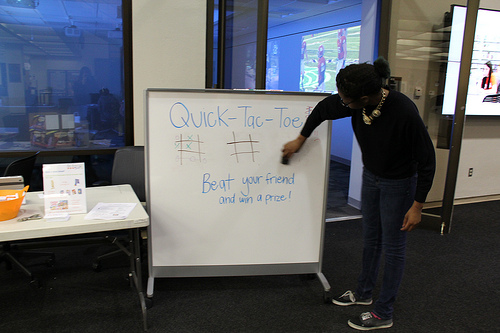 Quick-Tac-Toe
Beat your friend
and win a prize!